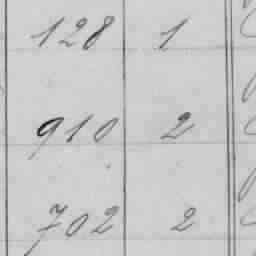 128 1
910 2
702 2